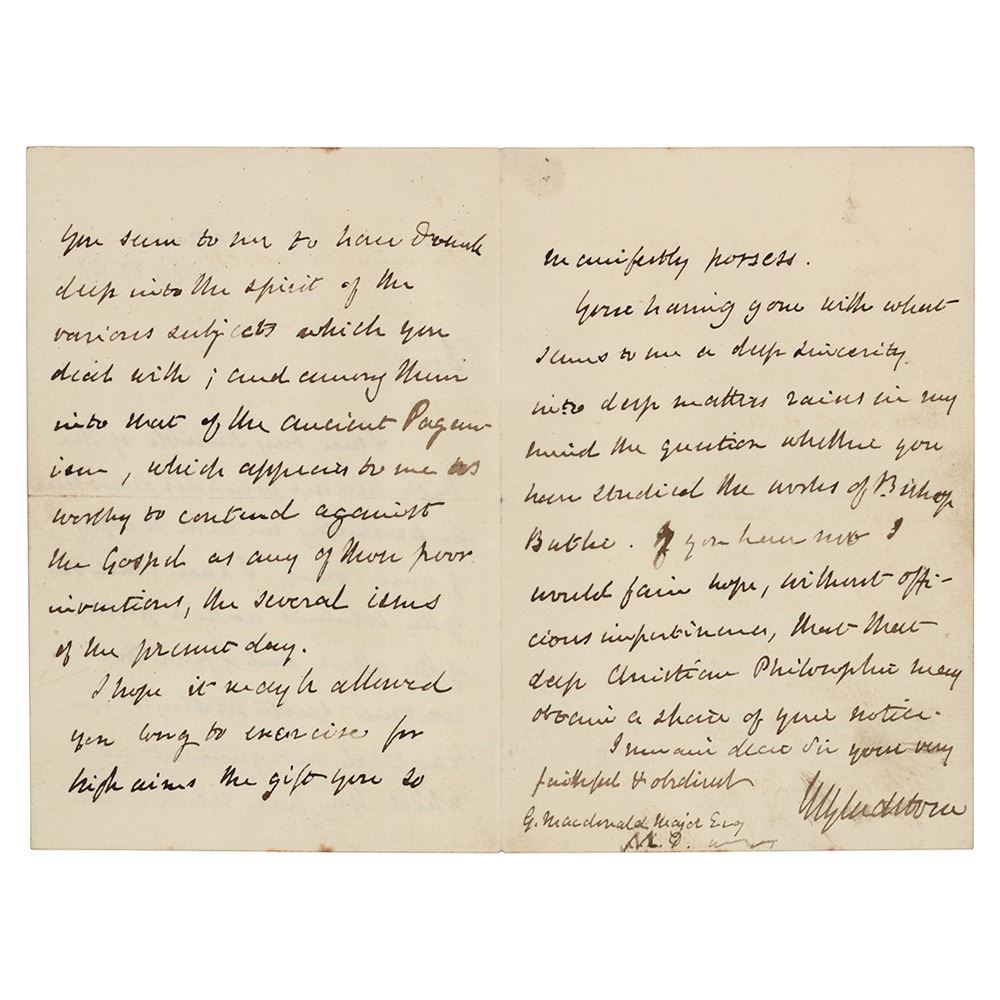 You seem to me to have drunk
deep into the spirit of the
various subjects which you
deal with; and among them
into that of the ancient Pagan-
ism, which appears to me as
worthy to contend against
the Gospel as any of those poor
inventions, the several isms
of the present day.
I hope it may be allowed
you long to exercise for
high aims the gift you so
manifestly possess.
Your having gone with what
seems to me a deep sincerity
into deep matters raises in my
mind the question whether you
have studied the works of Bishop
Butler. If you have not I
would fain hope, without offi-
cious impertinence, that that
deep Christian Philosopher may
obtain a share of your notice.
I remain dear Sir your very
faithful & obedient
WGladstone
G. Macdonald Major Esq
M.D.